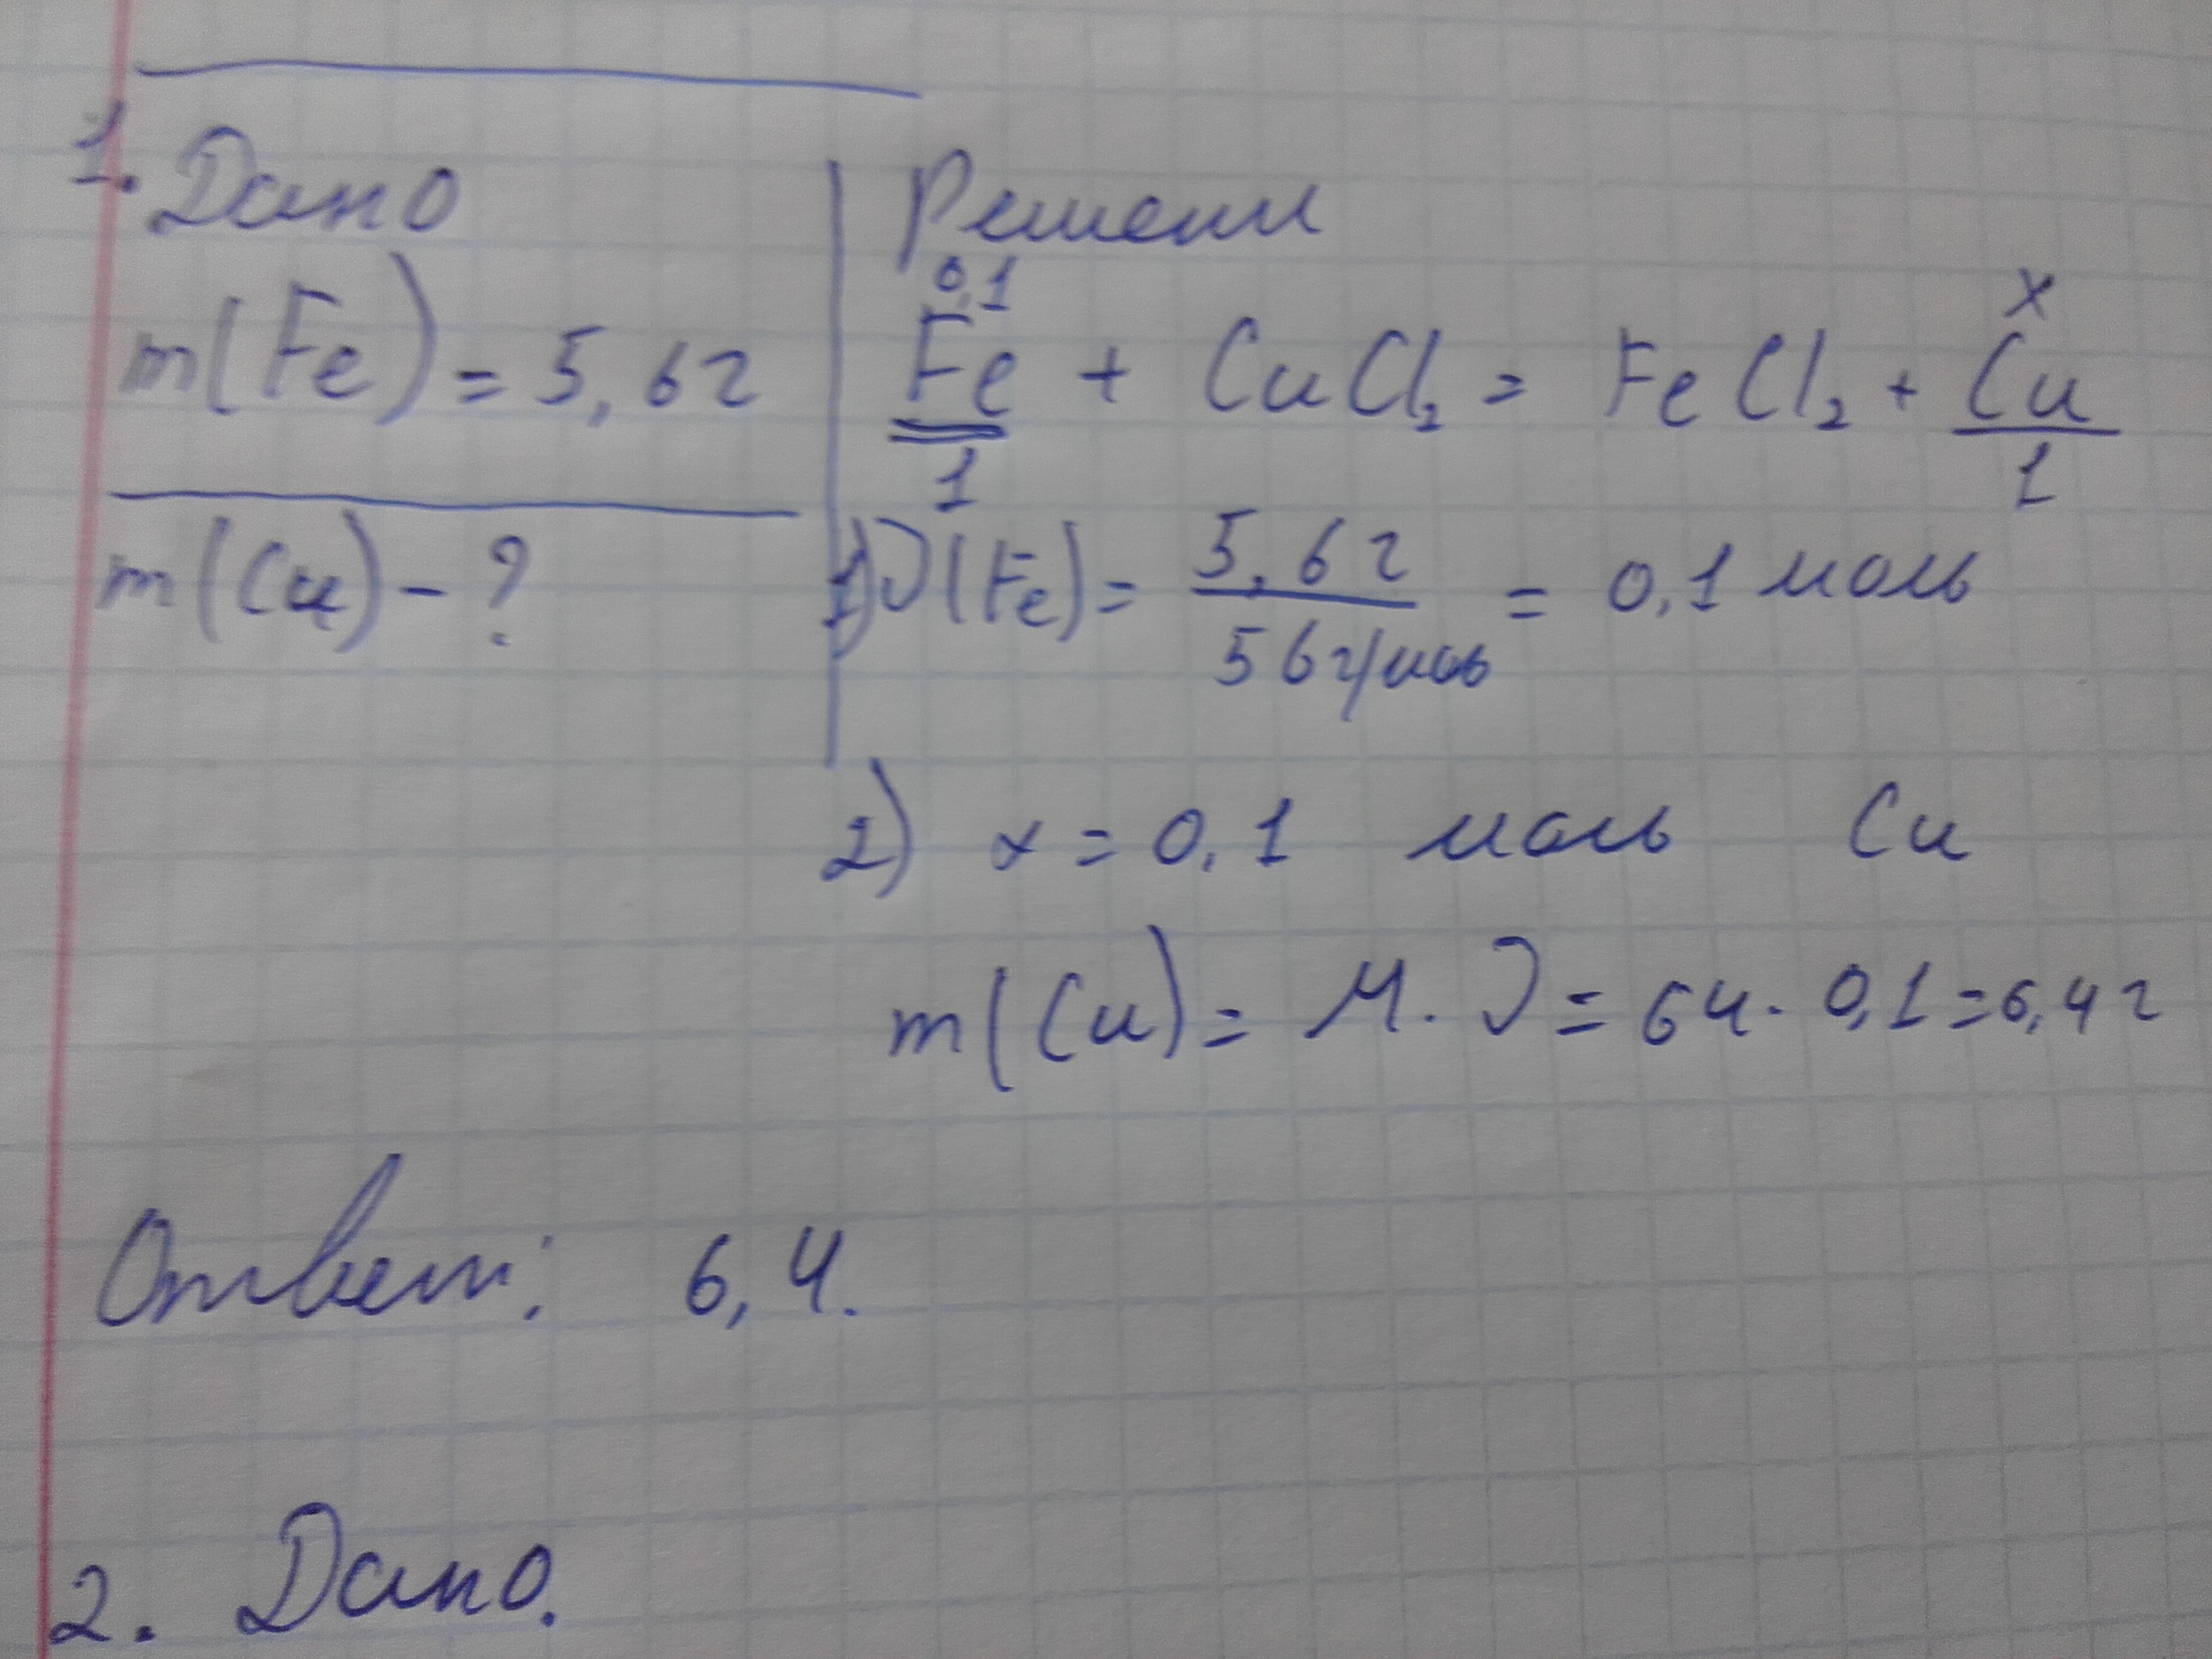 1. Дано
m(Fe) = 5,6г
m(Cu) - ?
Решени
0,1 x
Fe + CuCl₂ = FeCl₂ + Cu
1 1
1) ν(Fe) = 5,6г / 56г/моль = 0,1 моль
2) x = 0,1 моль Cu
m(Cu) = M · ν = 64 · 0,1 = 6,4г
Ответ: 6,4.
2. Дано.